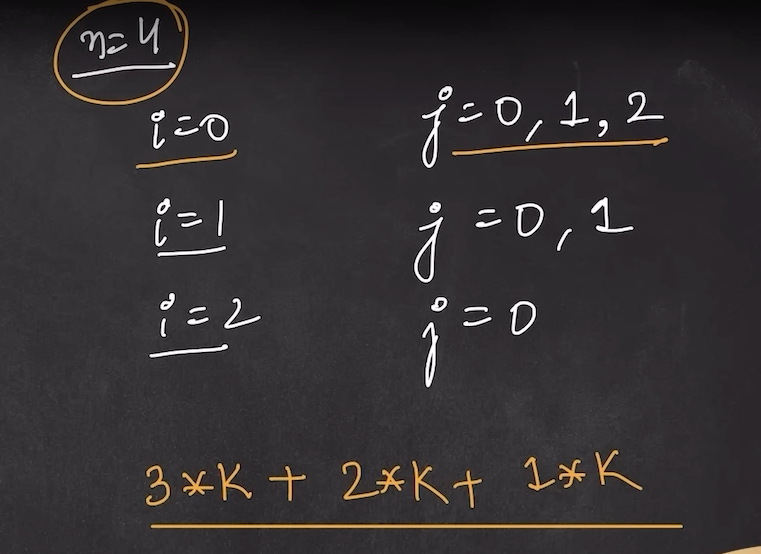 n=4
i=0 j=0, 1, 2
i=1 j=0, 1
i=2 j=0
3*K + 2*K + 1*K